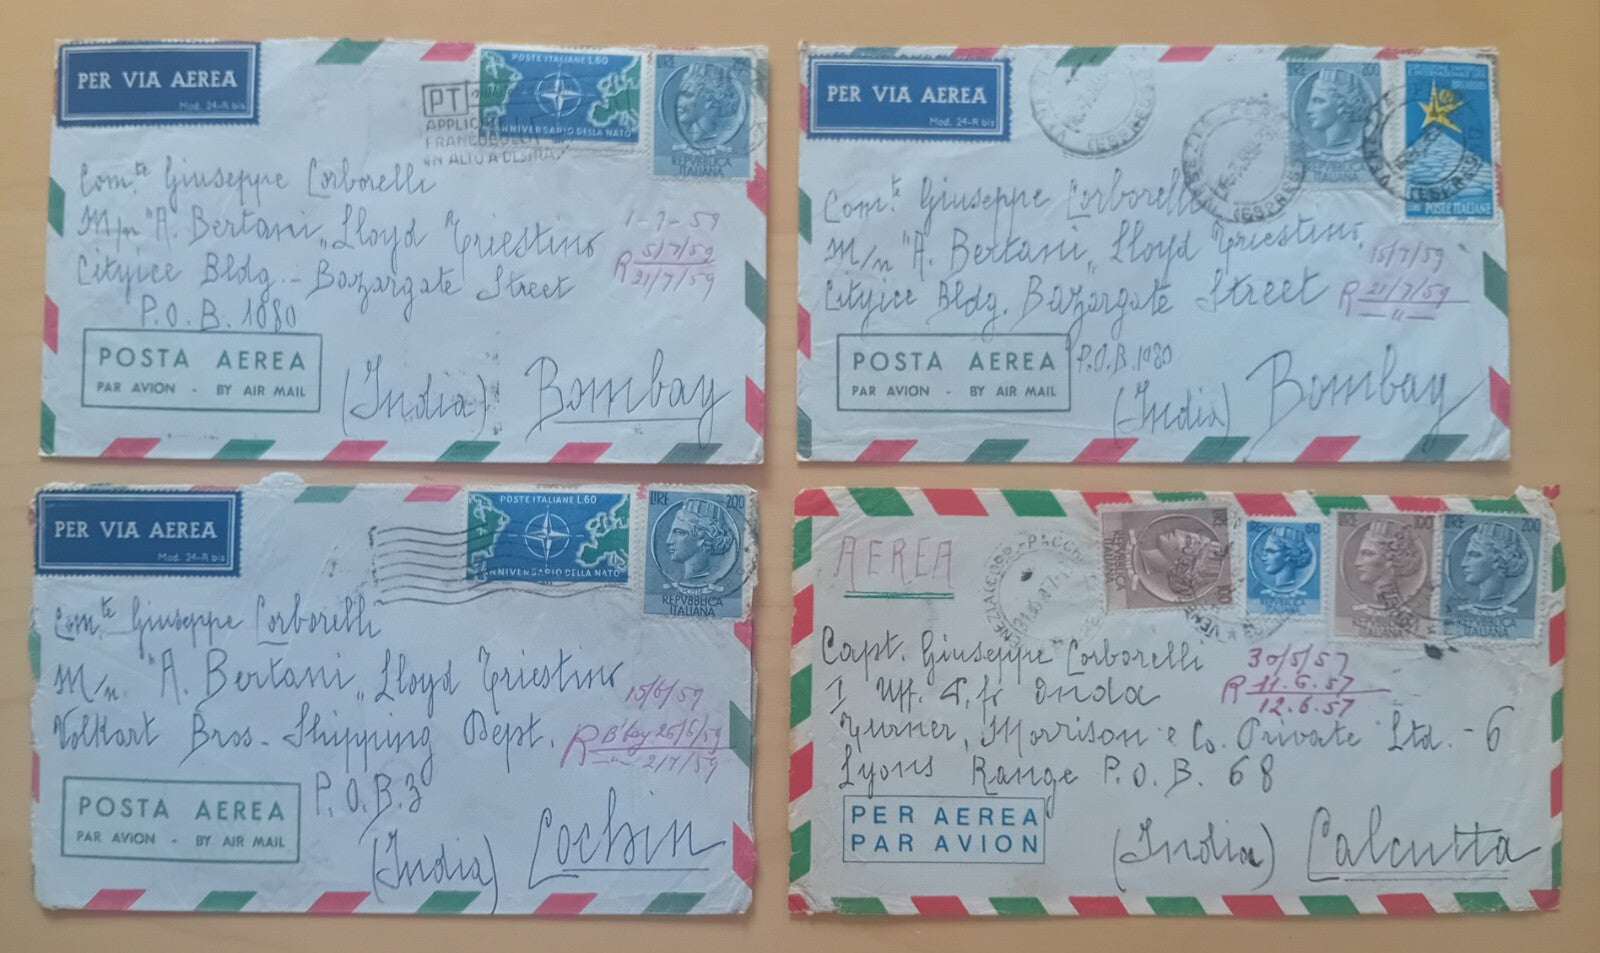 PER VIA AEREA
Mod. 24-R bis
POSTE ITALIANE L.60
ANNIVERSARIO DELLA NATO
LIRE
REPVBBLICA
ITALIANA
PT
Com.te Giuseppe Corborelli
M/n "A. Bertani" Lloyd Triestino
Cityice Bldg. - Bazargate Street
P.O.B. 1080
1-7-59
R 5/7/59
21/7/59
POSTA AEREA
PAR AVION - BY AIR MAIL
(India) Bombay
PER VIA AEREA
Mod. 24-R bis
LIRE 200
REPVBBLICA
ITALIANA
POSTE ITALIANE
Com.te Giuseppe Corborelli
M/n "A. Bertani" Lloyd Triestino
Cityice Bldg. Bazargate Street
P.O.B. 1080
15/7/59
R 21/7/59
"
POSTA AEREA
PAR AVION - BY AIR MAIL
(India) Bombay
PER VIA AEREA
Mod. 24-R bis
POSTE ITALIANE L.60
ANNIVERSARIO DELLA NATO
LIRE 200
REPVBBLICA
ITALIANA
Com.te Giuseppe Corborelli
M/n. "A. Bertani" Lloyd Triestino
Volkart Bros. Shipping Dept.
P.O.B. 3
15/6/59
R B'bay 26/6/59
" 2/7/59
POSTA AEREA
PAR AVION - BY AIR MAIL
(India) Cochin
AEREA
LIRE 100
REPVBBLICA
ITALIANA
60
LIRE 100
REPVBBLICA
ITALIANA
LIRE 200
REPVBBLICA
ITALIANA
Capt. Giuseppe Corborelli
I Uff. P.fo Onda
Turner, Morrison e Co. Private Ltd. - 6
Lyons Range P.O.B. 68
30/5/57
R 11.6.57
12.6.57
PER AEREA
PAR AVION
(India) Calcutta